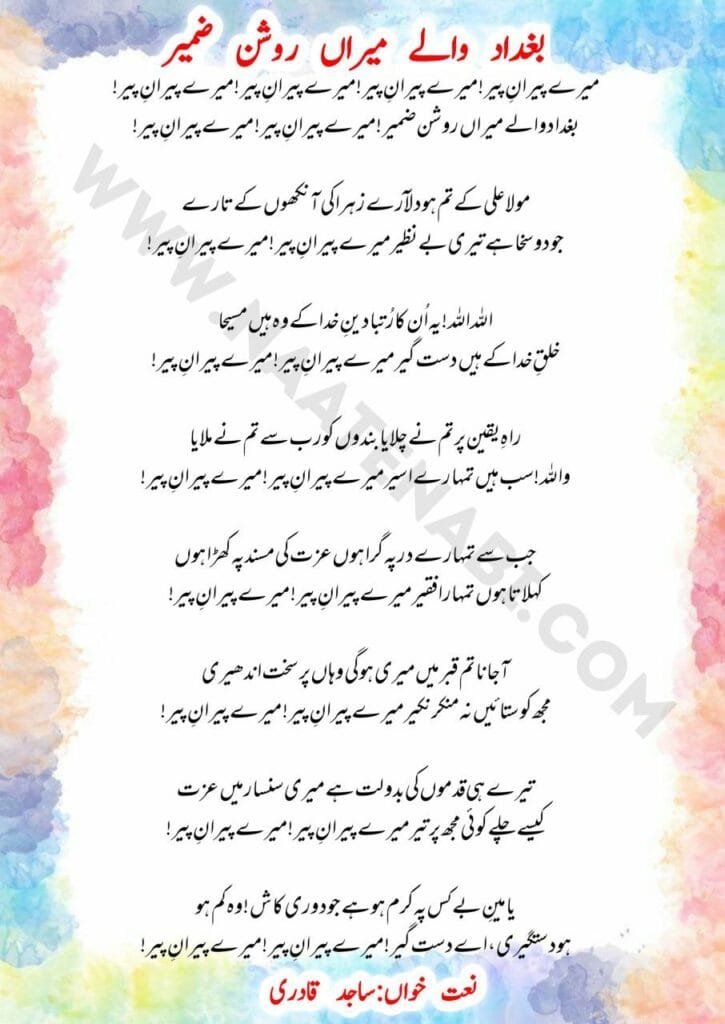 بغداد والے میراں روشن ضمیر
میرے پیرانِ پیر!میرے پیرانِ پیر!میرے پیرانِ پیر!میرے پیرانِ پیر!
بغداد والے میراں روشن ضمیر!میرے پیرانِ پیر!میرے پیرانِ پیر!
مولا علی کے تم ہو دلآرے زہرا کی آنکھوں کے تارے
جود و سخا ہے تیری بے نظیر میرے پیرانِ پیر!میرے پیرانِ پیر!
اللہ اللہ!یہ اُن کا رُتبا دینِ خدا کے وہ ہیں مسیحا
خلقِ خدا کے ہیں دست گیر میرے پیرانِ پیر!میرے پیرانِ پیر!
راہِ یقین پر تم نے چلایا بندوں کو رب سے تم نے ملایا
واللہ!سب ہیں تمہارے اسیر میرے پیرانِ پیر!میرے پیرانِ پیر!
جب سے تمہارے در پہ گرا ہوں عزت کی مسند پہ کھڑا ہوں
کہلاتا ہوں تمہارا فقیر میرے پیرانِ پیر!میرے پیرانِ پیر!
آجانا تم قبر میں میری ہوگی وہاں پر سخت اندھیری
مجھ کو ستائیں نہ منکر نکیر میرے پیرانِ پیر!میرے پیرانِ پیر!
تیرے ہی قدموں کی بدولت ہے میری سنسار میں عزت
کیسے چلے کوئی مجھ پر تیر میرے پیرانِ پیر!میرے پیرانِ پیر!
یامینِ بے کس پہ کرم ہو ہے جو دوری کاش!وہ کم ہو
ہو دستگیری،اے دست گیر!میرے پیرانِ پیر!میرے پیرانِ پیر!
نعت خواں:ساجد قادری
WWW.NAATENABI.COM